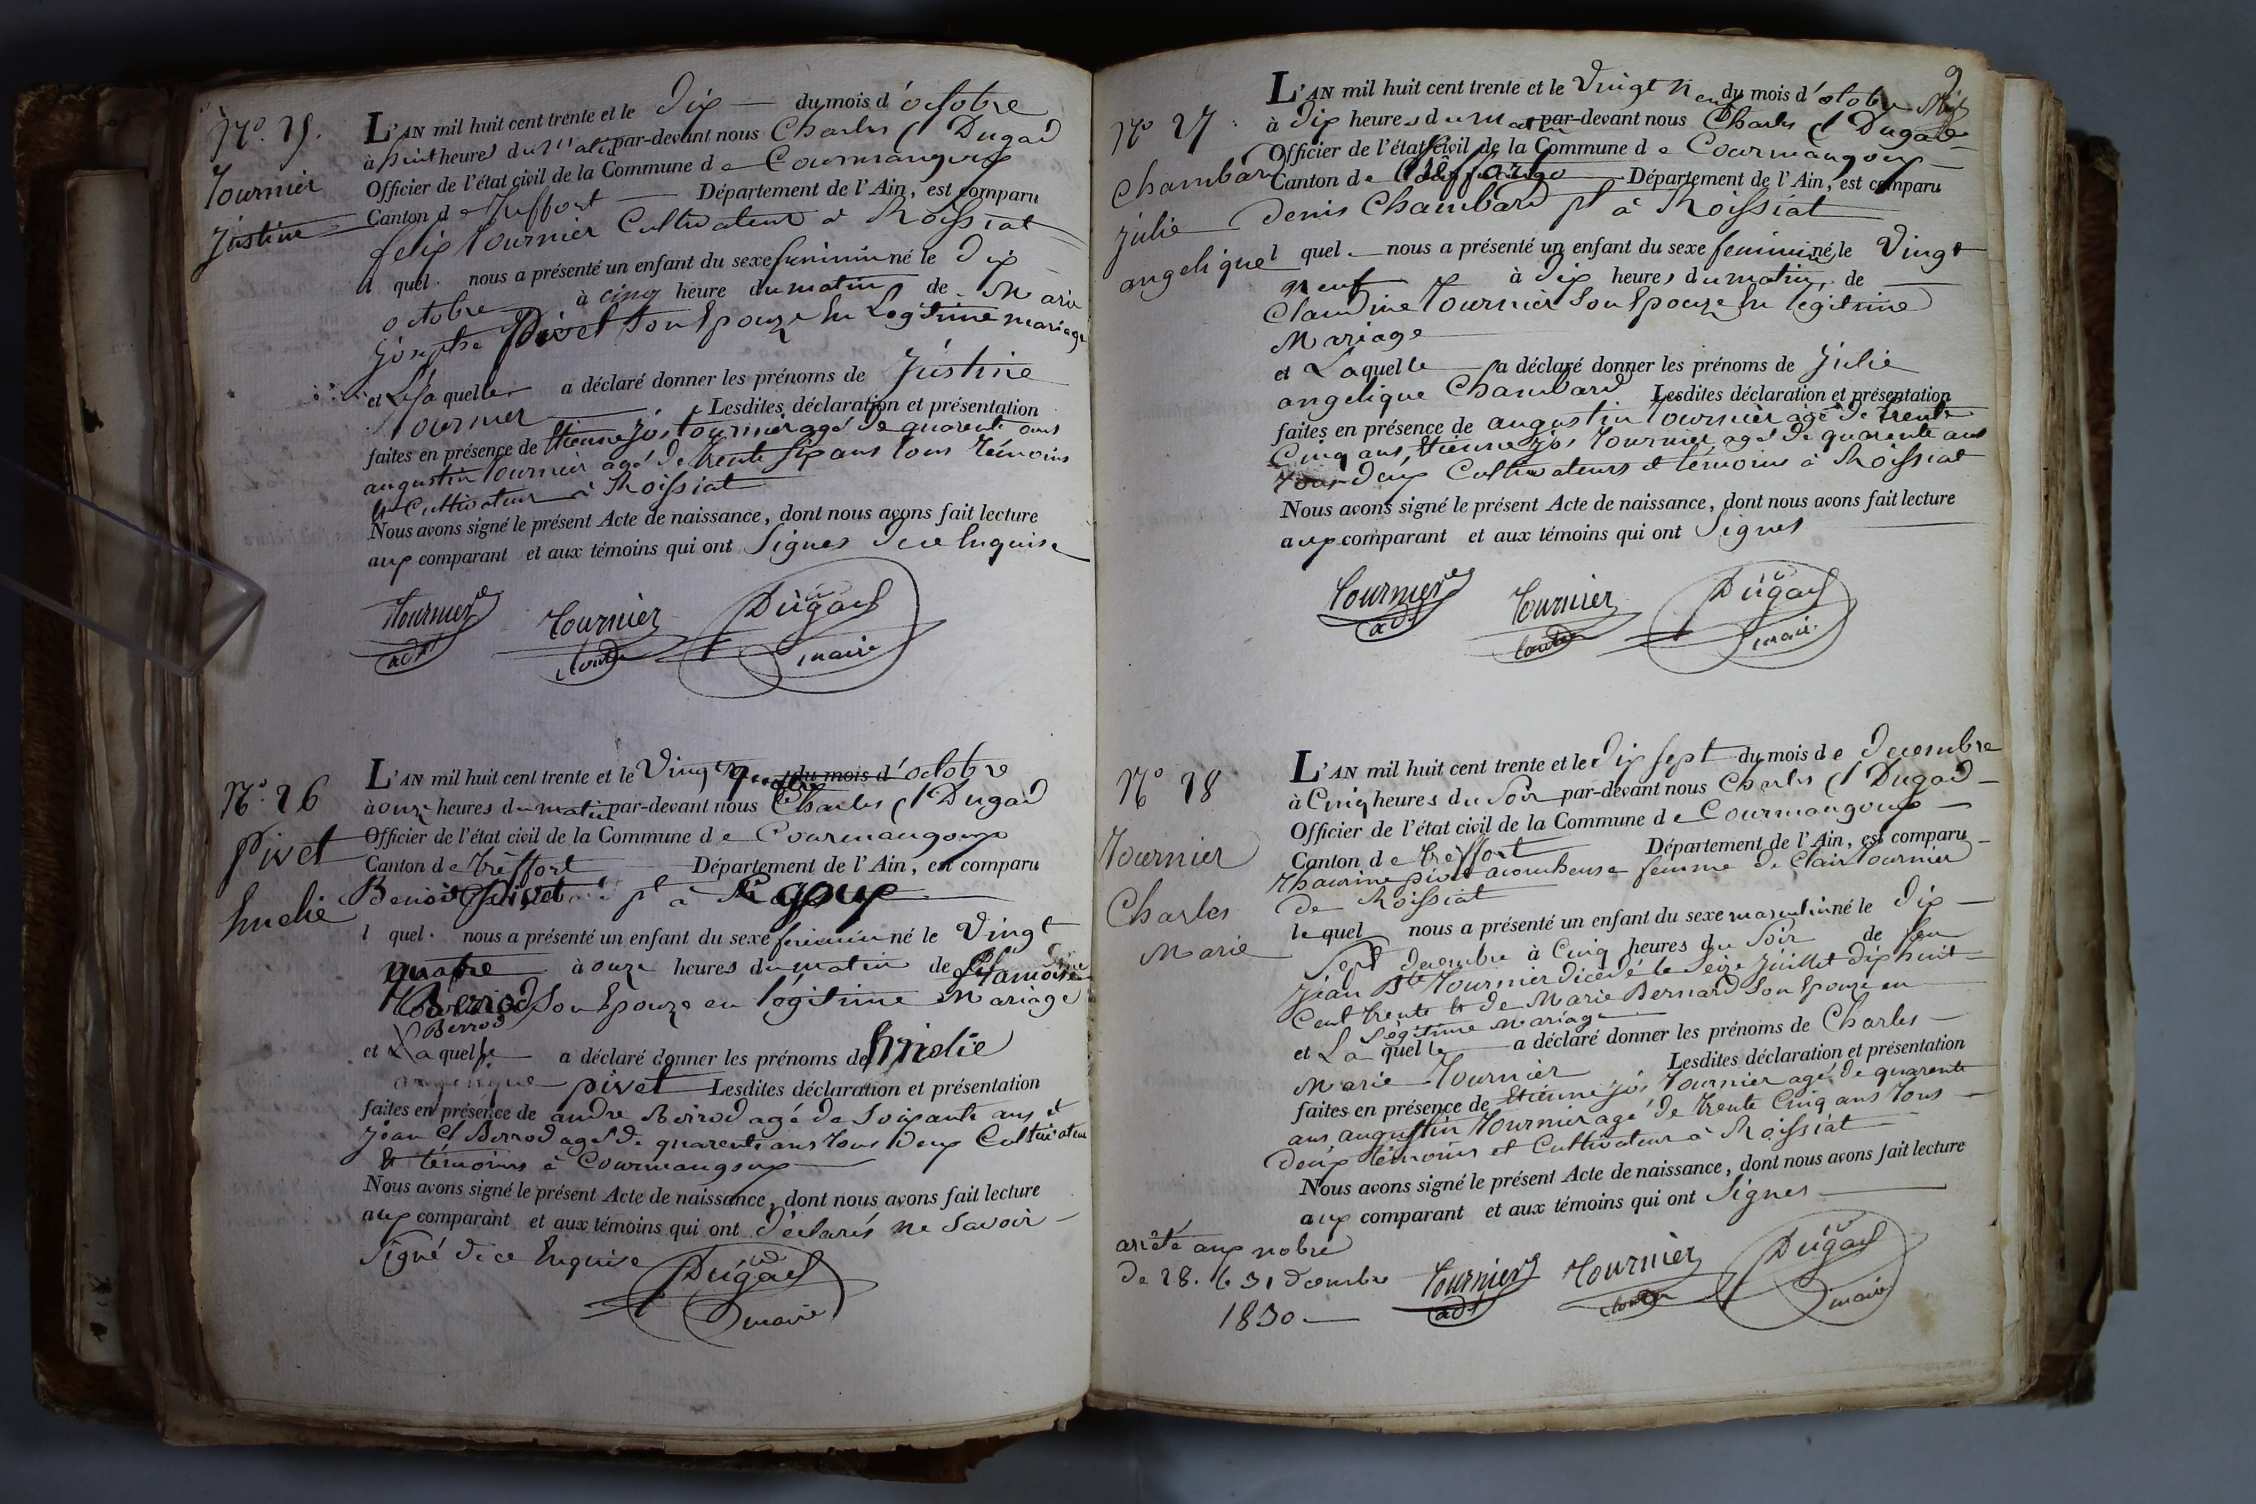 N.º 25.
Tournier
Justine
L'AN mil huit cent trente et le Dix du mois d'octobre
à huit heures du matin par-devant nous Charles Cl Dugad
Officier de l'état civil de la Commune de Courmangoux
Canton de treffort Département de l'Ain, est comparu
felix Tournier Cultivateur à Roissiat
l quel nous a présenté un enfant du sexe feminin né le Dix
octobre à cinq heure du matin de Marie
Josephe Pivet Son Epouze En Légitime mariage
et Laquelle a déclaré donner les prénoms de Justine
Tournier Lesdites déclaration et présentation
faites en présence de Etienne Jos Tournier agé de quarente ans
augustin Tournier agé de trente six ans tous témoins
et Cultivateur à Roissiat
Nous avons signé le présent Acte de naissance, dont nous avons fait lecture
aux comparant et aux témoins qui ont Signés de ce Enquise
Tournier adt
Tournier
Dugad maire
N.º 26
Pivet
Emelie
L'AN mil huit cent trente et le Vingt quatre du mois d'octobre
à onze heures du matin par-devant nous Charles Cl Dugad
Officier de l'état civil de la Commune de Courmangoux
Canton de tréffort Département de l'Ain, est comparu
Benoit Pivet pt à goux
l quel nous a présenté un enfant du sexe feminin né le Vingt
quatre à onze heures du matin de
Berrod Son Epouze en légitime Mariage
Berrod
et Laquelle a déclaré donner les prénoms de Emelie
pivet Lesdites déclaration et présentation
faites en présence de andre Boirod agé de Soixante ans et
Jean Cl Berrod agé de quarente ans tous Deux Cultivateur
et témoins à Courmangoux
Nous avons signé le présent Acte de naissance, dont nous avons fait lecture
aux comparant et aux témoins qui ont déclarés ne Savoir
Signé de ce Enquise
Dugad maire
N.º 27
Chambard
Julie
angelique
L'AN mil huit cent trente et le Vingt Neuf du mois d'otobre
à Dix heures du matin par-devant nous Charles Cl Dugad
Officier de l'état civil de la Commune de Courmangoux
Canton de Tréffort Département de l'Ain, est comparu
Denis Chambard pt à Roissiat
l quel nous a présenté un enfant du sexe feminin né le Vingt
neuf à dix heures du matin, de
Claudine Tournier Son Epouze En légitime
Mariage
et Laquelle a déclaré donner les prénoms de Julie
angelique Chambard Lesdites déclaration et présentation
faites en présence de augustin Tournier agé de trente
Cinq ans, Etienne Jos Tournier agé de quarente ans
Tous Deux Cultivateurs et témoins à Roissiat
Nous avons signé le présent Acte de naissance, dont nous avons fait lecture
aux comparant et aux témoins qui ont Signés
Tournier adt
Tournier
Dugad maire
N.º 28
Tournier
Charles
Marie
L'AN mil huit cent trente et le Dix Sept du mois de Decembre
à Cinq heures du Soir par-devant nous Charles Cl Dugad
Officier de l'état civil de la Commune de Courmangoux
Canton de tréffort Département de l'Ain, est comparu
pivet acoucheuse femme de Clair Tournier
de Roissiat
lequel nous a présenté un enfant du sexe masculin né le Dix
Sept decembre à Cinq heures du Soir de feu
Jean Bte Tournier décédé le Seize Juillet dix huit
Cent trente et de Marie Bernard Son Epouze en
Légitime Mariage
et La quelle a déclaré donner les prénoms de Charles
Marie Tournier Lesdites déclaration et présentation
faites en présence de Etienne Jos Tournier agé de quarente
ans augustin Tournier agé de trente Cinq ans tous
deux témoins et Cultivateur à Roissiat
Nous avons signé le présent Acte de naissance, dont nous avons fait lecture
aux comparant et aux témoins qui ont Signés
arrêté aux nobre
de 28. le 31 decembre
1830
Tournier adt
Tournier
Dugad maire